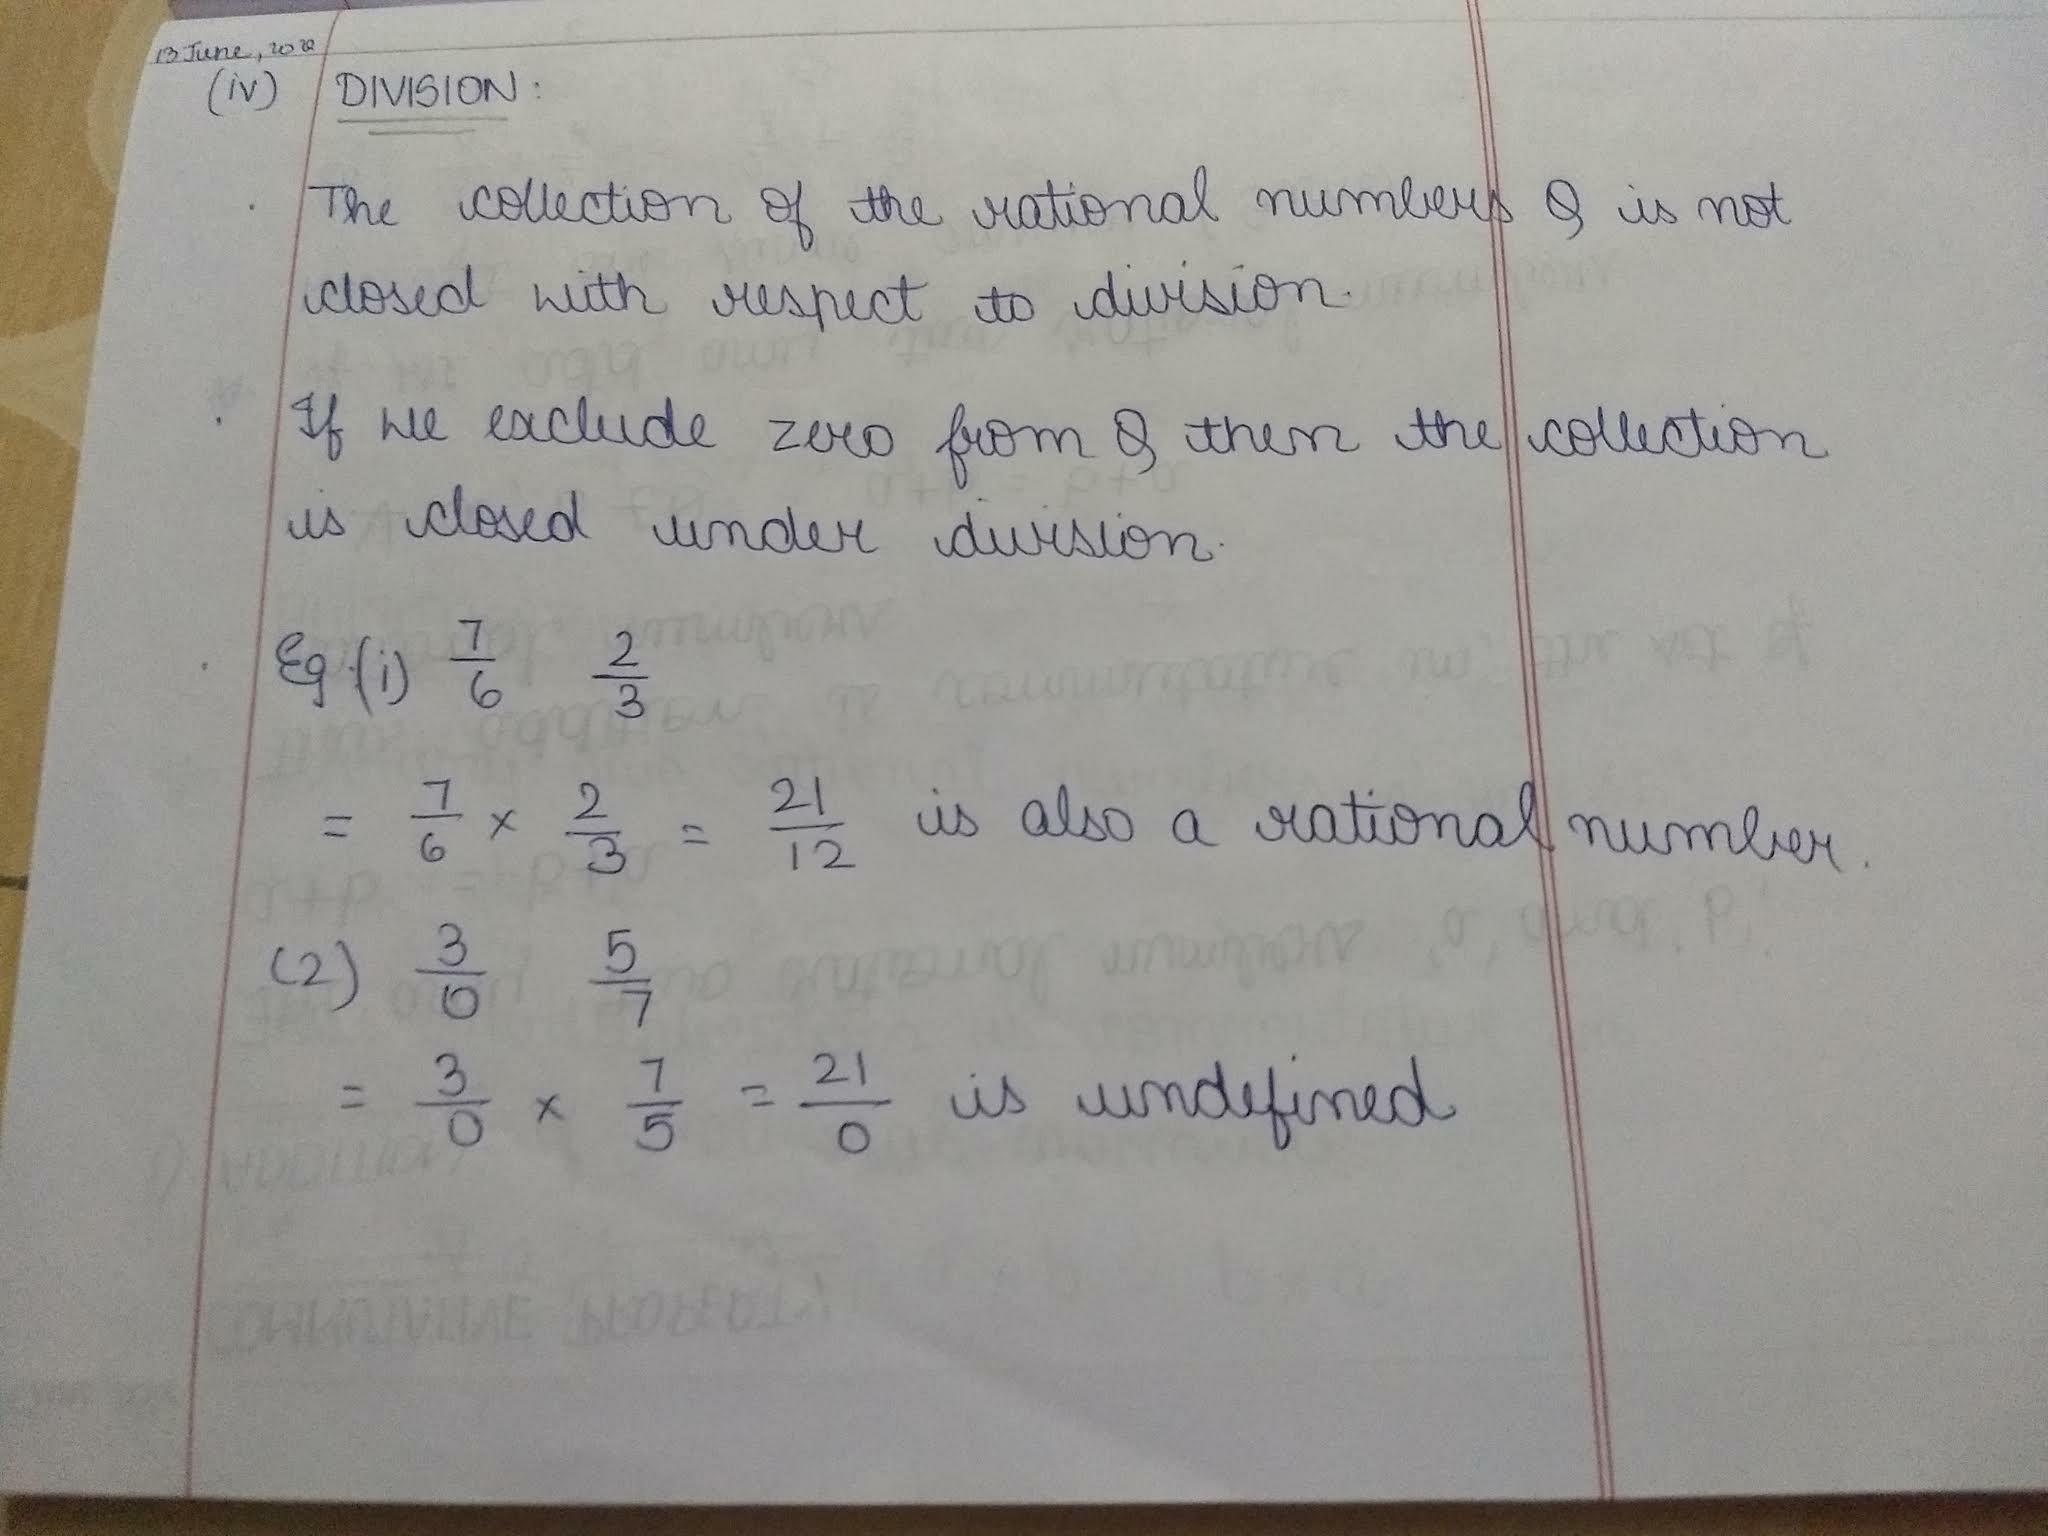 13 June, 2022
(iv) DIVISION:
. The collection of the rational numbers Q is not
closed with respect to division.
. If we exclude zero from Q then the collection
is closed under division.
. Eg.(i) 7/6 2/3
= 7/6 × 2/3 = 21/12 is also a rational number.
(2) 3/0 5/7
= 3/0 × 7/5 = 21/0 is undefined